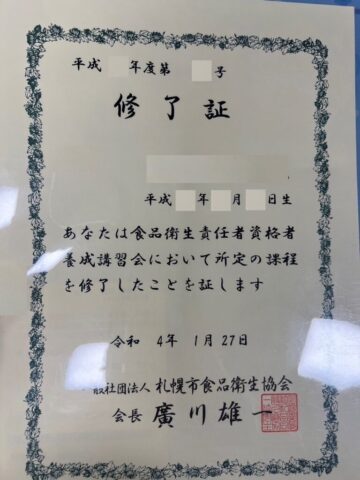 平成 年度第 号
修了証
平成 年 月 日生
あなたは食品衛生責任者資格者
養成講習会において所定の課程
を修了したことを証します
令和 4年 1月27日
般社団法人 札幌市食品衛生協会
会長 廣川雄一